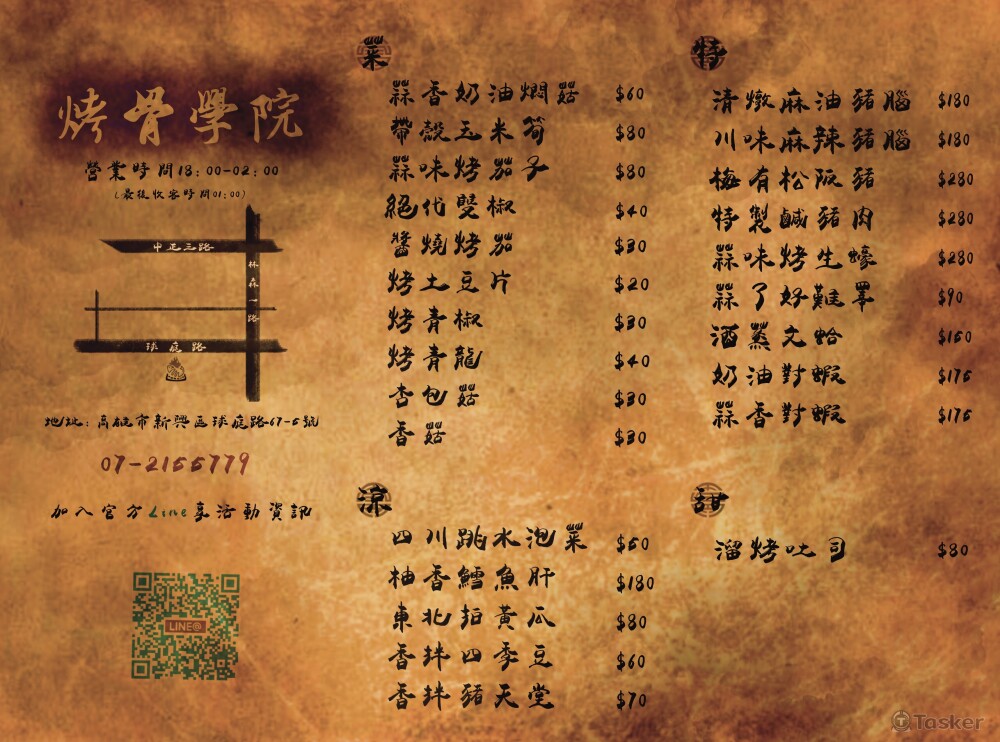 烤骨學院
營業時間18:00-02:00
(最後收客時間01:00)
中正三路
林森一路
球庭路
地址:高雄市新興區球庭路67-5號
07-2155779
加入官方Line享活動資訊
LINE@
菜
蒜香奶油燜菇 $60
帶殼玉米筍 $80
蒜味烤茄子 $80
絕代雙椒 $40
醬燒烤茄 $30
烤土豆片 $20
烤青椒 $30
烤青龍 $40
杏包菇 $30
香菇 $30
涼
四川跳水泡菜 $50
柚香鱈魚肝 $180
東北拍黃瓜 $80
香拌四季豆 $60
香拌豬天堂 $70
特
清燉麻油豬腦 $180
川味麻辣豬腦 $180
梅有松阪豬 $280
特製鹹豬肉 $280
蒜味烤生蠔 $280
蒜了好難睪 $90
酒蒸文蛤 $150
奶油對蝦 $175
蒜香對蝦 $175
甜
溜烤吐司 $80
Tasker